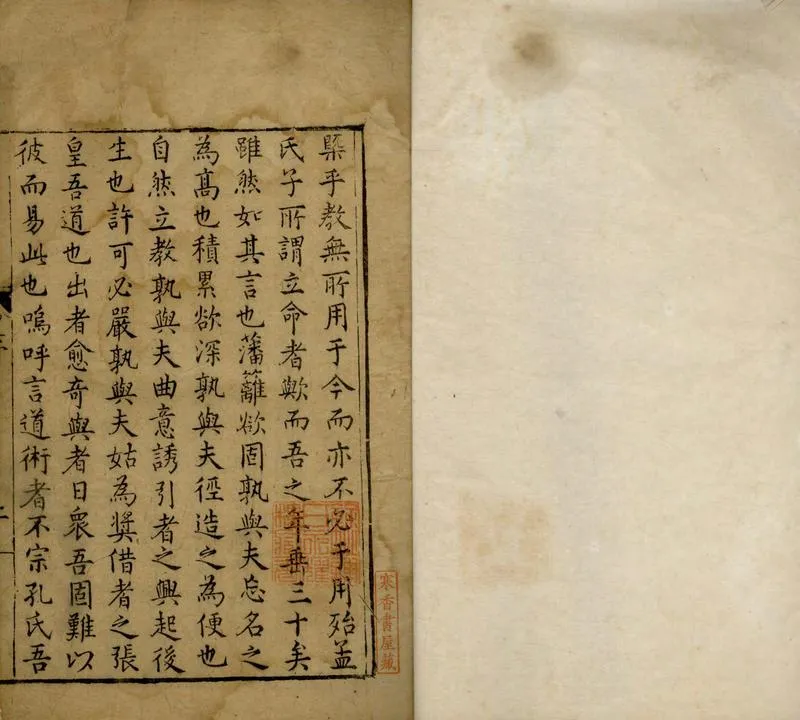 寒香書屋藏
槩乎教無所用于今而亦不必于用殆孟
氏子所謂立命者歟而吾之年垂三十矣
雖然如其言也藩籬欲固孰與夫忘名之
為高也積累欲深孰與夫徑造之為便也
自然立教孰與夫曲意誘引者之興起後
生也許可必嚴孰與夫姑為獎借者之張
皇吾道也出者愈奇與者日衆吾固難以
彼而易此也嗚呼言道術者不宗孔氏吾